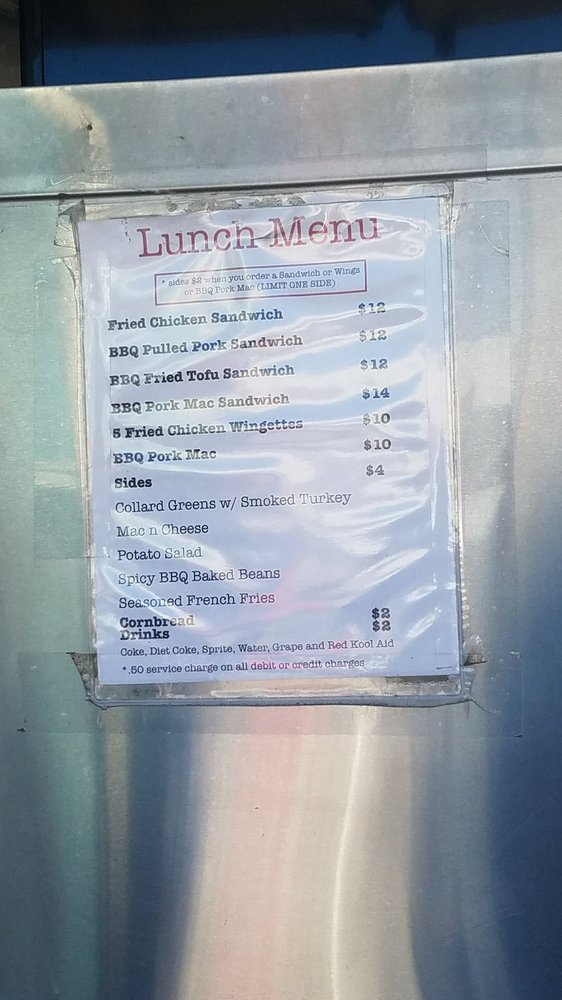 Lunch Menu
* sides $2 when you order a Sandwich or Wings
or BBQ Pork Mac (LIMIT ONE SIDE)
Fried Chicken Sandwich $12
BBQ Pulled Pork Sandwich $12
BBQ Fried Tofu Sandwich $12
BBQ Pork Mac Sandwich $14
5 Fried Chicken Wingettes $10
BBQ Pork Mac $10
Sides $4
Collard Greens w/ Smoked Turkey
Mac n Cheese
Potato Salad
Spicy BBQ Baked Beans
Seasoned French Fries
Cornbread $2
Drinks $2
Coke, Diet Coke, Sprite, Water, Grape and Red Kool Aid
*.50 service charge on all debit or credit charges